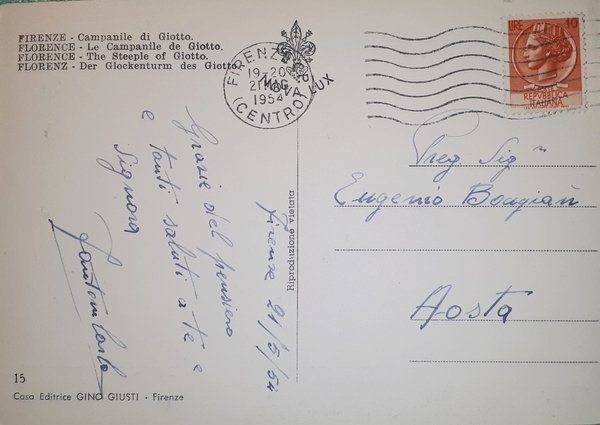 FIRENZE - Campanile di Giotto.
FLORENCE - Le Campanile de Giotto.
FLORENCE - The Steeple of Giotto.
FLORENZ - Der Glockenturm des Giotto.
FIRENZE
19-20
21 MAG
1954
(CENTRO)
NOVA LUX
LIRE 10
REPVBBLICA
ITALIANA
Preg Sigʳ
Eugenio
Aosta
Firenze 21/5/54
Grazie del pensiero
e tanti saluti a te e
Signora
Riproduzione vietata
15
Casa Editrice GINO GIUSTI - Firenze